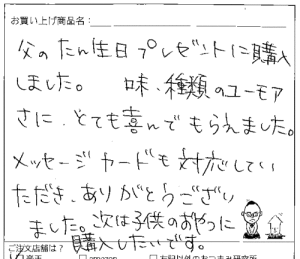 お買い上げ商品名：
父のたん生日プレゼントに購入
しました。 味、種類のユーモア
さに、とても喜んでもらえました。
メッセージカードも対応してい
ただき、ありがとうござい
ました。次は子供のおやつに
購入したいです。
ご注文店舗は？